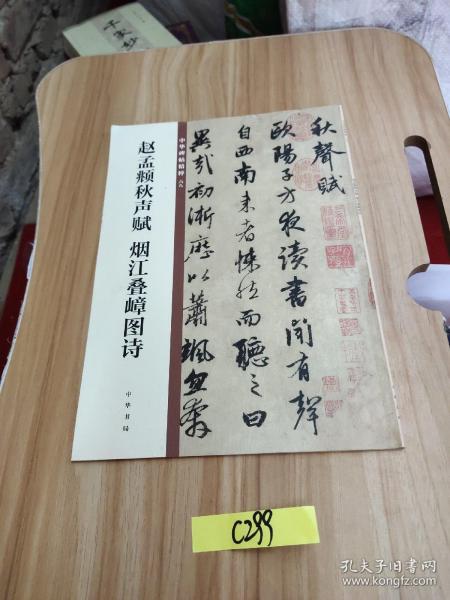 秋聲賦
歐陽子方夜讀書聞有聲
自西南来者悚然而聽之曰
異哉初淅瀝以蕭颯忽奔
中华碑帖精粹
赵孟頫秋声赋 烟江叠嶂图诗
中华书局
C299
孔夫子旧书网
www.kongfz.com